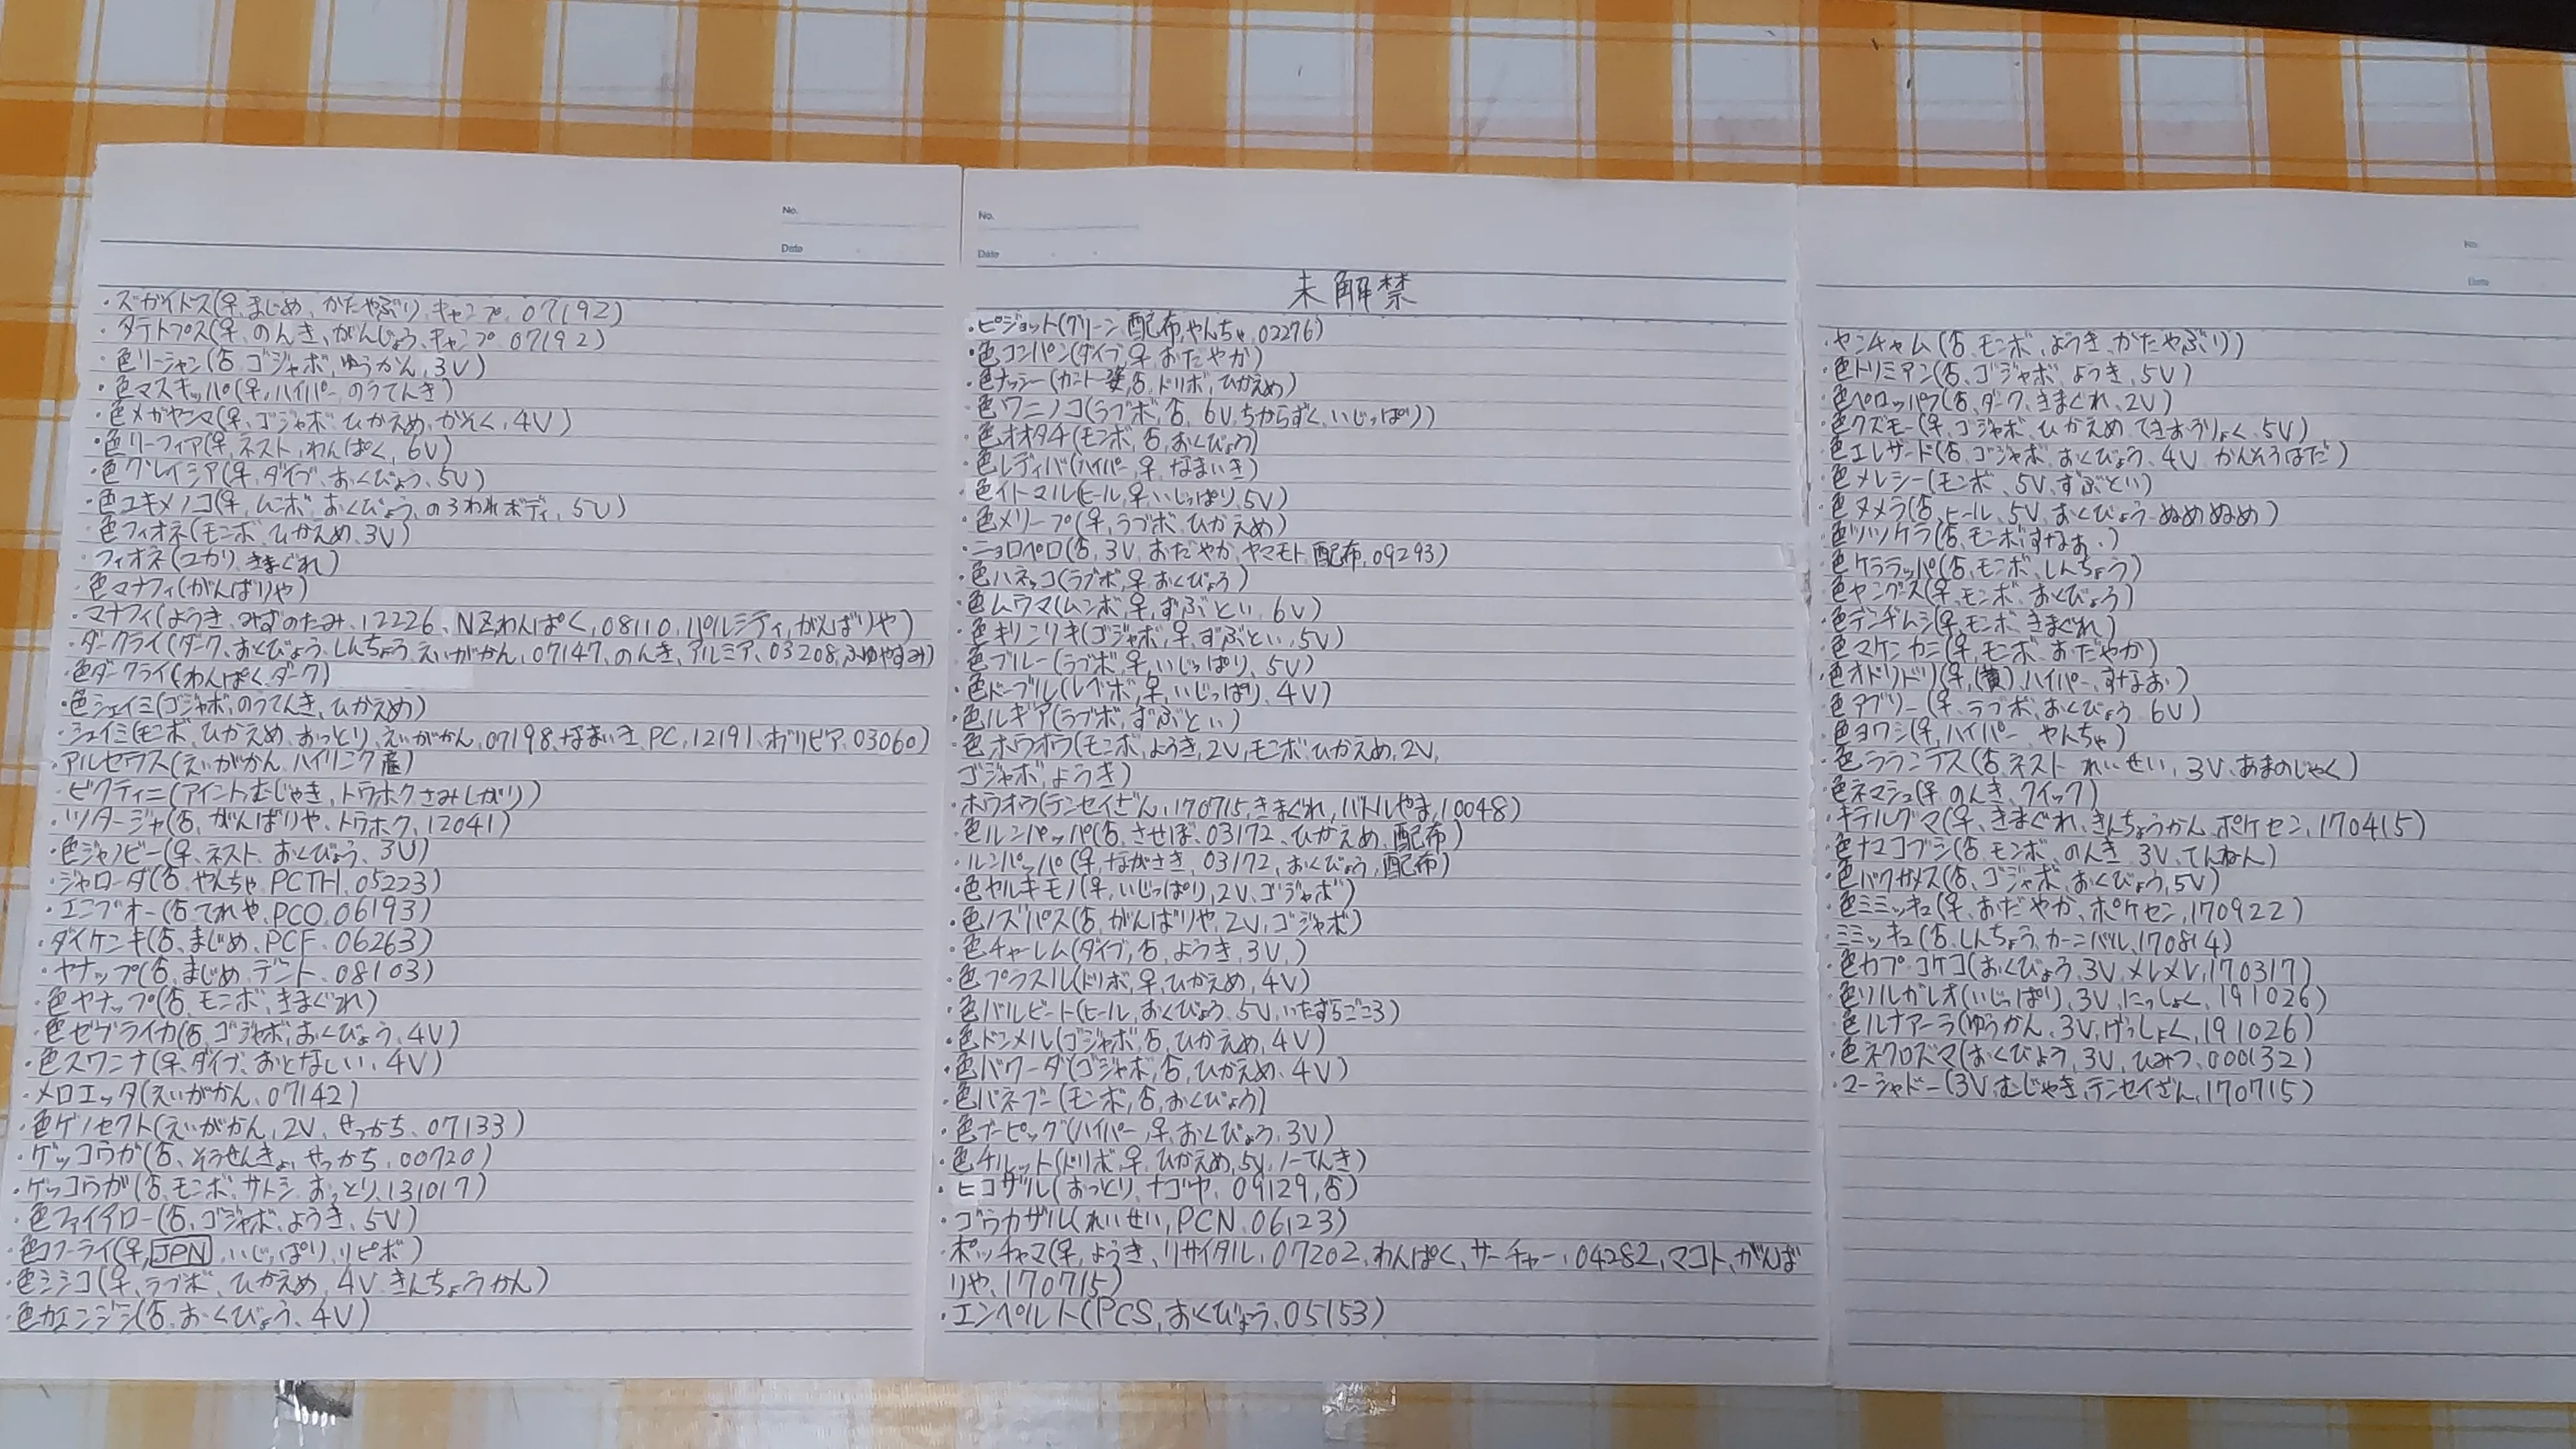 No.
Date
・ズガイドス(♀、まじめ、かたやぶり、キャンプ、07192)
・タテトプス(♀、のんき、がんじょう、キャンプ 07192)
・色リーシャン(♂、ゴジャボ、ゆうかん、3V)
・色マスキッパ(♀、ハイパー、のうてんき)
・色メガヤンマ(♀、ゴジャボ、ひかえめ、かそく、4V)
・色リーフィア(♀、ネスト、わんぱく、6V)
・色グレイシア(♀、ダイブ、おくびょう、5V)
・色ユキメノコ(♀、ムンボ、おくびょう、のろわれボディ、5V)
・色フィオネ(モンボ、ひかえめ、3V)
・フィオネ(ユカリ、きまぐれ)
・色マナフィ(がんばりや)
・マナフィ(ようき、みずのたみ、12226、NZ、わんぱく、08110、パルシティ、がんばりや)
・ダークライ(ダーク、おくびょう、しんちょう、えいがかん、07147、のんき、アルミア、03208、ふゆやすみ)
・色ダークライ(わんぱく、ダーク)
・色シェイミ(ゴジャボ、のうてんき、ひかえめ)
・シェイミ(モンボ、ひかえめ、おっとり、えいがかん、07198、なまいき、PC、12191、オブリビア、03060)
・アルセウス(えいがかん、ハイリンク産)
・ビクティニ(アイントゥ、むじゃき、トウホク、さみしがり)
・ツタージャ(♂、がんばりや、トウホク、12041)
・色ジャノビー(♀、ネスト、おくびょう、3V)
・ジャローダ(♂、やんちゃ、PCTH、05223)
・エンブオー(♂、てれや、PCO、06193)
・ダイケンキ(♂、まじめ、PCF、06263)
・ヤナップ(♂、まじめ、デント、08103)
・色ヤナップ(♂、モンボ、きまぐれ)
・色ゼブライカ(♂、ゴジャボ、おくびょう、4V)
・色スワンナ(♀、ダイブ、おとなしい、4V)
・メロエッタ(えいがかん、07142)
・色ゲノセクト(えいがかん、2V、せっかち、07133)
・ゲッコウガ(♂、そうせんきょ、せっかち、00720)
・ゲッコウガ(♂、モンボ、サトシ、おっとり、131017)
・色ファイアロー(♂、ゴジャボ、ようき、5V)
・色コフーライ(♀、JPN、いじっぱり、リピボ)
・色シシコ(♀、ラブボ、ひかえめ、4V、きんちょうかん)
・色カエンジシ(♂、おくびょう、4V)
No.
Date
未解禁
・ピジョット(グリーン、配布、やんちゃ、02276)
・色コンパン(ダイブ、♀、おだやか)
・色ナッシー(カントー姿、♂、ドリボ、ひかえめ)
・色ワニノコ(ラブボ、♂、6V、ちからずく、いじっぱり)
・色オオタチ(モンボ、♂、おくびょう)
・色レディバ(ハイパー、♀、なまいき)
・色イトマル(ヒール、♀、いじっぱり、5V)
・色メリープ(♀、ラブボ、ひかえめ)
・ニョロペロ(♂、3V、おだやか、ヤマモト、配布、09293)
・色ハネッコ(ラブボ、♀、おくびょう)
・色ムウマ(ムンボ、♀、ずぶとい、6V)
・色キリンリキ(ゴジャボ、♀、ずぶとい、5V)
・色ブルー(ラブボ、♀、いじっぱり、5V)
・色ドーブル(レベボ、♀、いじっぱり、4V)
・色ルギア(ラブボ、ずぶとい)
・色ホウオウ(モンボ、ようき、2V、モンボ、ひかえめ、2V、
ゴジャボ、ようき)
・ホウオウ(テンセイざん、170715、きまぐれ、バトルやま、10048)
・色ルンパッパ(♂、させぼ、03172、ひかえめ、配布)
・ルンパッパ(♀、ながさき、03172、おくびょう、配布)
・色ヤルキモノ(♀、いじっぱり、2V、ゴジャボ)
・色ノズパス(♂、がんばりや、2V、ゴジャボ)
・色チャーレム(ダイブ、♂、ようき、3V、)
・色プラスル(ドリボ、♀、ひかえめ、4V)
・色バルビート(ヒール、おくびょう、5V、いたずらごころ)
・色ドンメル(ゴジャボ、♂、ひかえめ、4V)
・色バクーダ(ゴジャボ、♂、ひかえめ、4V)
・色バネブー(モンボ、♂、おくびょう)
・色ブーピッグ(ハイパー、♀、おくびょう、3V)
・色チルット(ドリボ、♀、ひかえめ、5V、ノーてんき)
・ヒコザル(おっとり、ナゴヤ、09129、♂)
・ゴウカザル(れいせい、PCN、06123)
・ポッチャマ(♀、ようき、リサイタル、07202、わんぱく、サーチャー、04282、マコト、がんば
りや、170715)
・エンペルト(PCS、おくびょう、05153)
No.
Date
・ヤンチャム(♂、モンボ、ようき、かたやぶり)
・色トリミアン(♂、ゴジャボ、ようき、5V)
・色ペロッパフ(♂、ダーク、きまぐれ、2V)
・色クズモー(♀、ゴジャボ、ひかえめ、てきおうりょく、5V)
・色エレザード(♂、ゴジャボ、おくびょう、4V、かんそうはだ)
・色メレシー(モンボ、5V、ずぶとい)
・色ヌメラ(♂、ヒール、5V、おくびょう、ぬめぬめ)
・色ツツケラ(♂、モンボ、すなお、)
・色ケララッパ(♂、モンボ、しんちょう)
・色ヤングース(♀、モンボ、おくびょう)
・色デンヂムシ(♀、モンボ、きまぐれ)
・色マケンカニ(♀、モンボ、おだやか)
・色オドリドリ(♀、(黄)、ハイパー、すなお)
・色アブリー(♀、ラブボ、おくびょう、6V)
・色ヨワシ(♀、ハイパー、やんちゃ)
・色ラランテス(♂、ネスト、れいせい、3V、あまのじゃく)
・色ネマシュ(♀、のんき、クイック)
・キテルグマ(♀、きまぐれ、きんちょうかん、ポケセン、170415)
・色ナマコブシ(♂、モンボ、のんき、3V、てんねん)
・色バクガメス(♂、ゴジャボ、おくびょう、5V)
・色ミミッキュ(♀、おだやか、ポケセン、170922)
・ミミッキュ(♂、しんちょう、カーニバル、170814)
・色カプ・コケコ(おくびょう、3V、メレメレ、170317)
・色ソルガレオ(いじっぱり、3V、にっしょく、191026)
・色ルナアーラ(ゆうかん、3V、げっしょく、191026)
・色ネクロズマ(おくびょう、3V、ひみつ、000132)
・マーシャドー(3V、むじゃき、テンセイざん、170715)